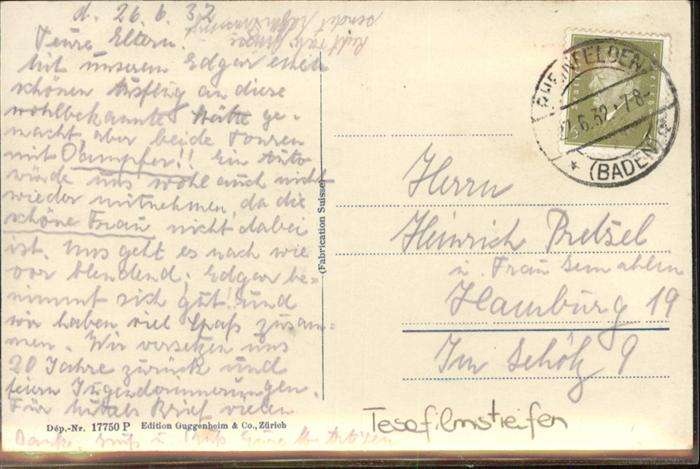 d. 26.6.32
Teure Eltern!
Mit unserem Edgar einen
schönen Ausflug an diese
wohlbekannte Stätte ge-
macht, aber beide Touren
mit Dampfer!! Ein Auto
würde uns wohl auch nicht
wieder mitnehmen, da die
schöne Frau nicht dabei
ist. Uns geht es nach wie
vor blendend; Edgar be-
nimmt sich gut und
wir haben viel Spaß zusam-
men. Wir versetzen uns
20 Jahre zurück und
feiern Jugenderinnerungen.
Für Brief vielen
Dank,
Dép.-Nr. 17750 P Edition Guggenheim & Co., Zürich
(Fabrication Suisse)
RHEINFELDEN
6.32.7-8
(BADEN)
Herrn
Heinrich Pretzel
u. Frau Gemahlin
Hamburg 19
Im Gehölz 9
Tesafilmstreifen